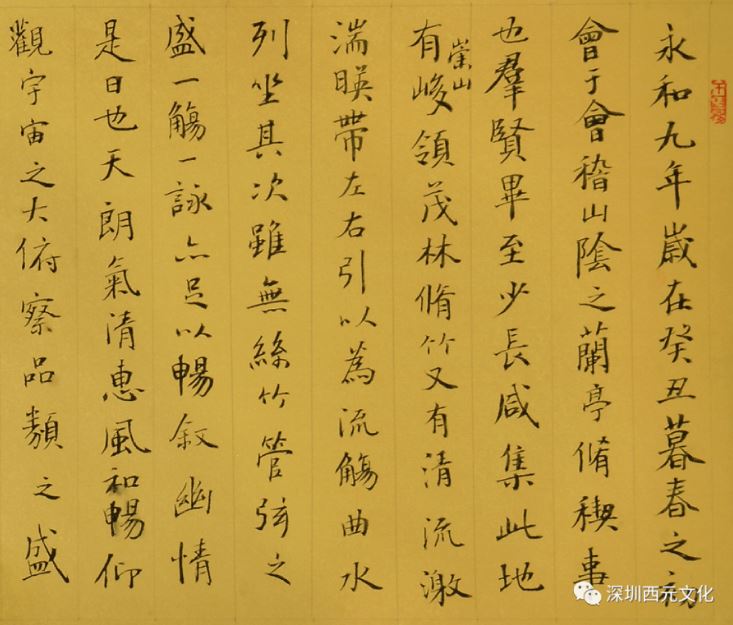 永和九年歲在癸丑暮春之初
會于會稽山陰之蘭亭脩稧事
也羣賢畢至少長咸集此地
有崇山峻領茂林脩竹又有清流激
湍暎帶左右引以為流觴曲水
列坐其次雖無絲竹管弦之
盛一觴一詠亦足以暢叙幽情
是日也天朗氣清惠風和暢仰
觀宇宙之大俯察品類之盛
深圳西元文化